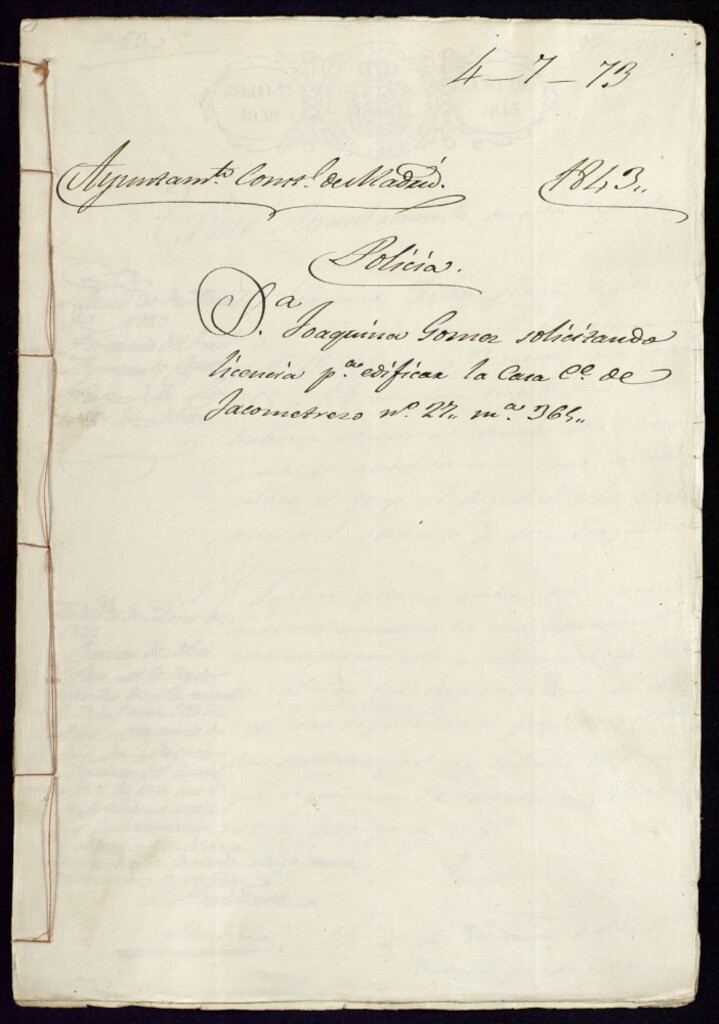 4-7-73
Ayuntamto. Constl. de Madrid. 1843.,
Policia.
Da. Joaquina Gomez solicitando
licencia pa. edificar la Casa Ce. de
Jacometrezo no. 27., ma. 365.,